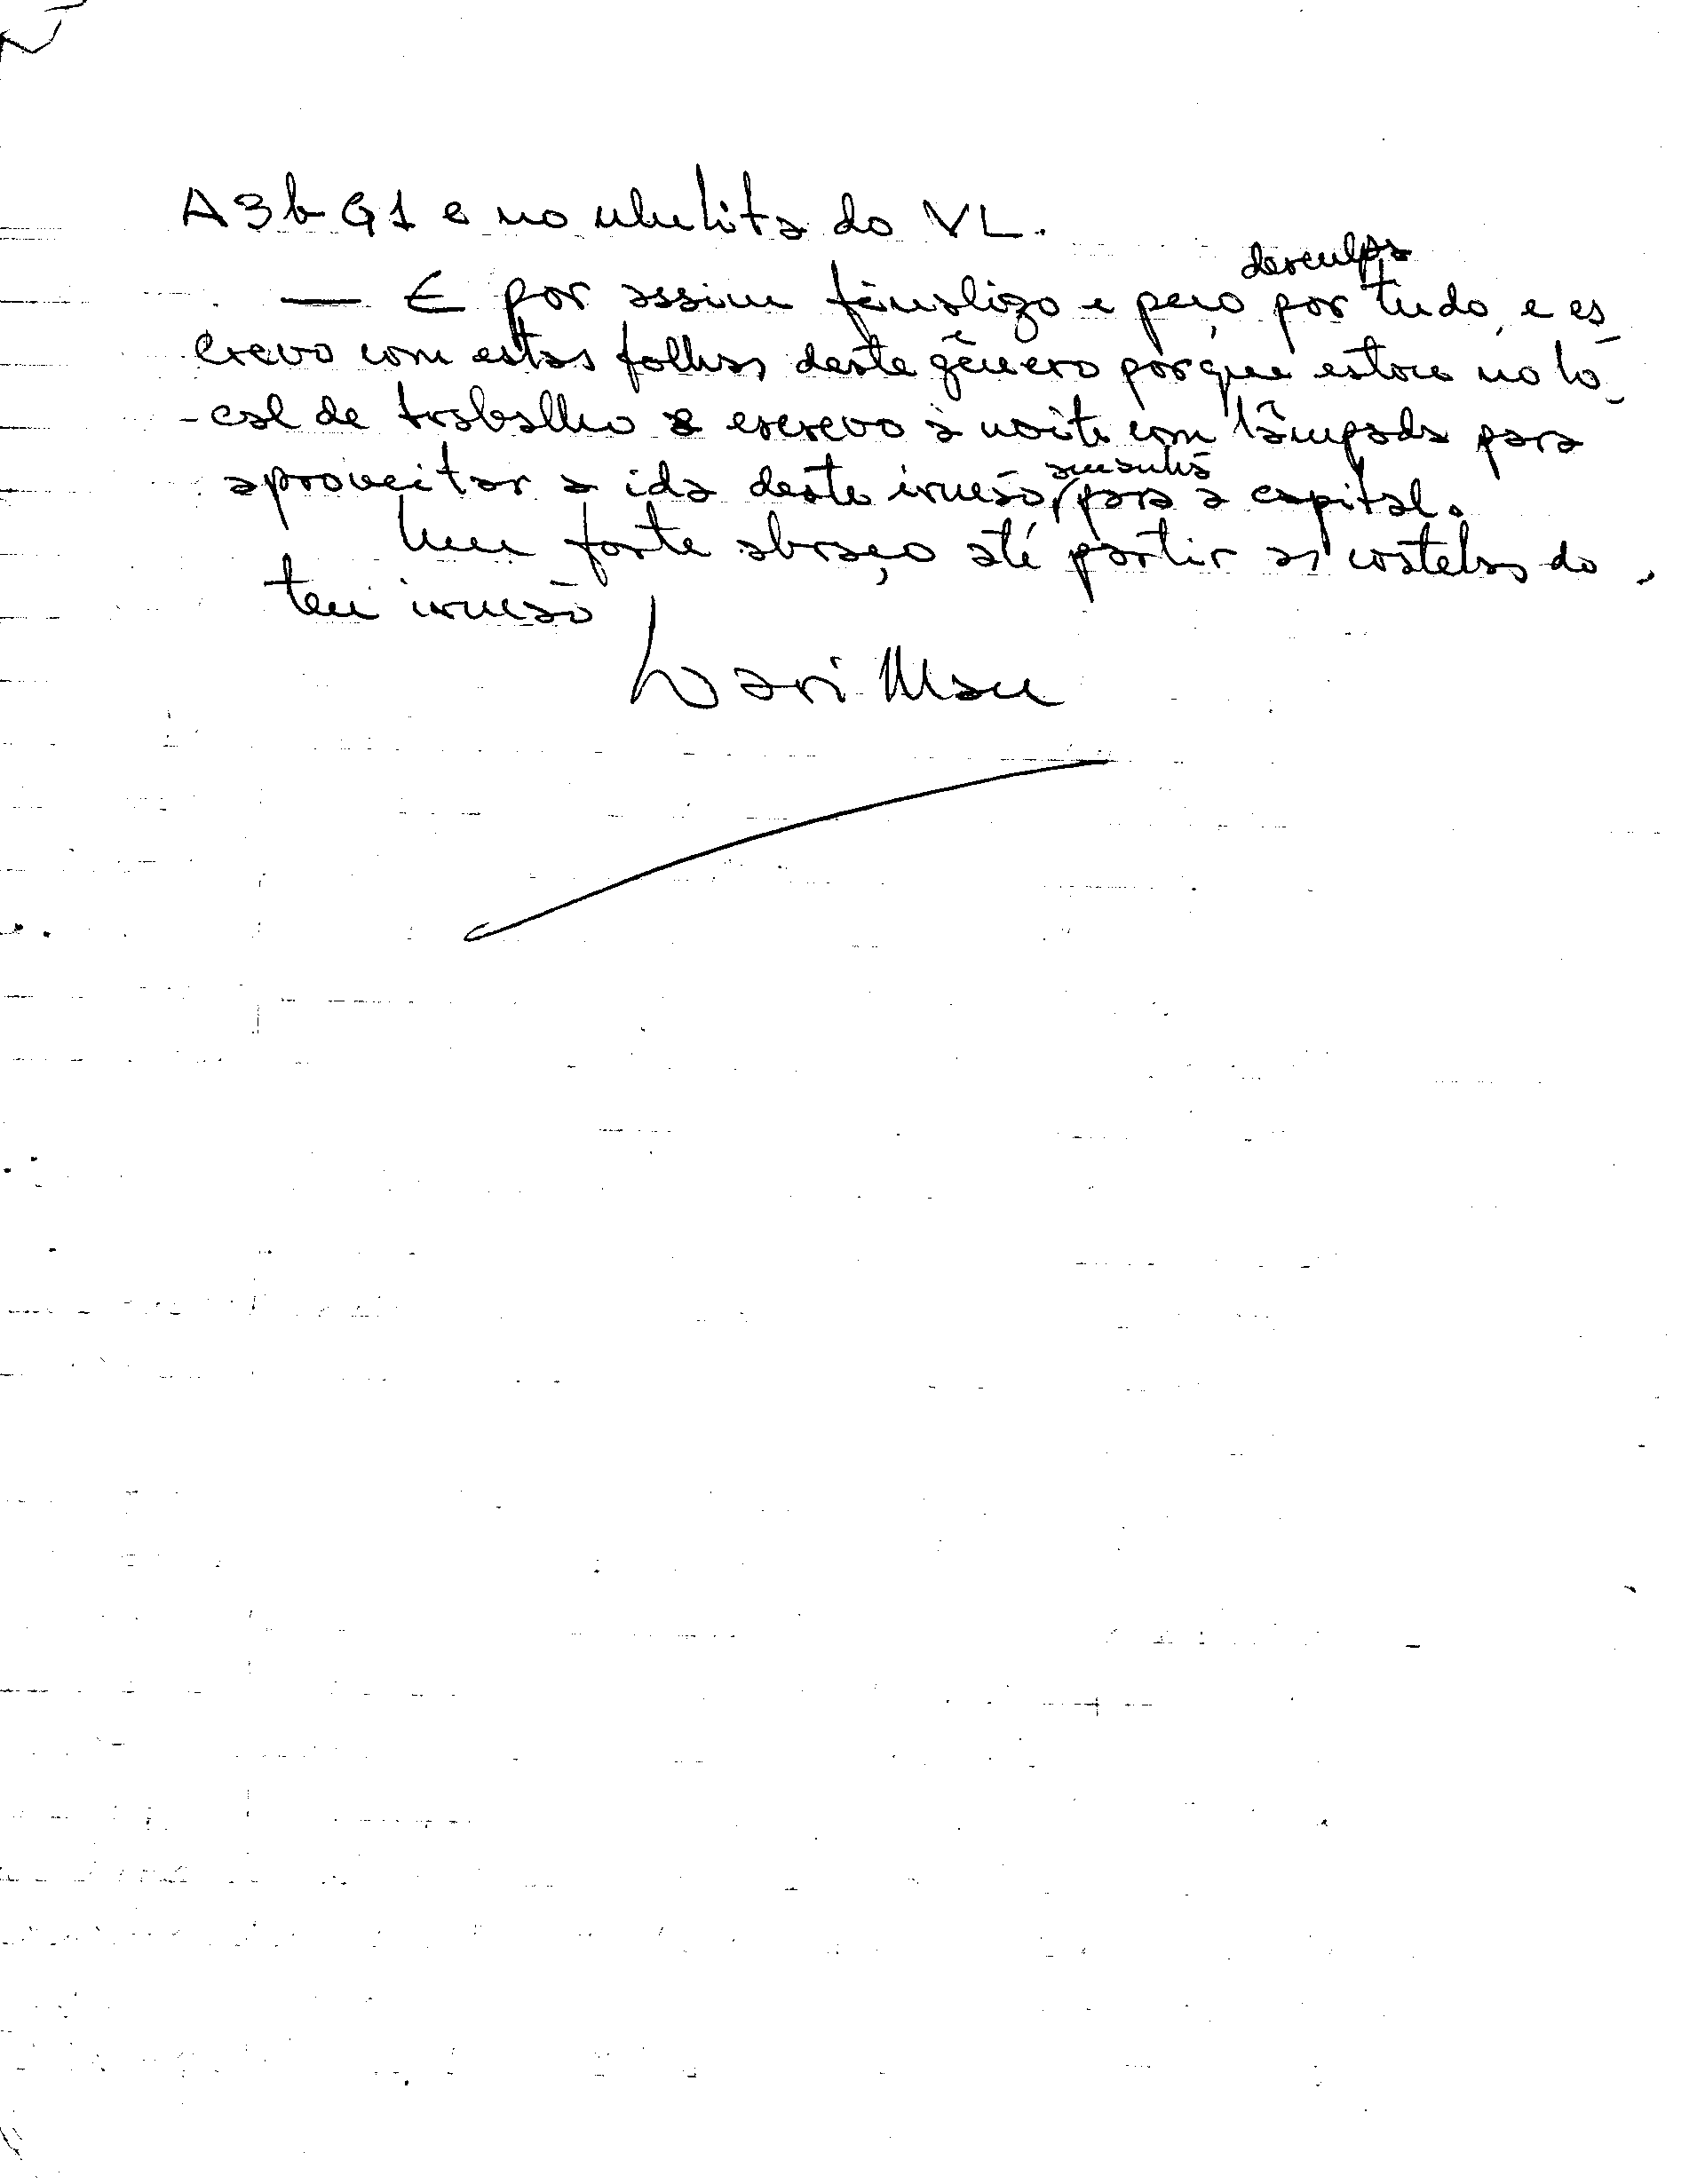 A3b G1 e no ulului ta do VL.
— E por assim finalizo e peço desculpa por tudo, e es-
crevo com estas folhas deste gênero porque estou no lo-
-cal de trabalho e escrevo à noite com lâmpada para
aproveitar a ida deste irmão, amanhã para a capital.
Um forte abraço até partir as costelas do
teu irmão
Lari Mau